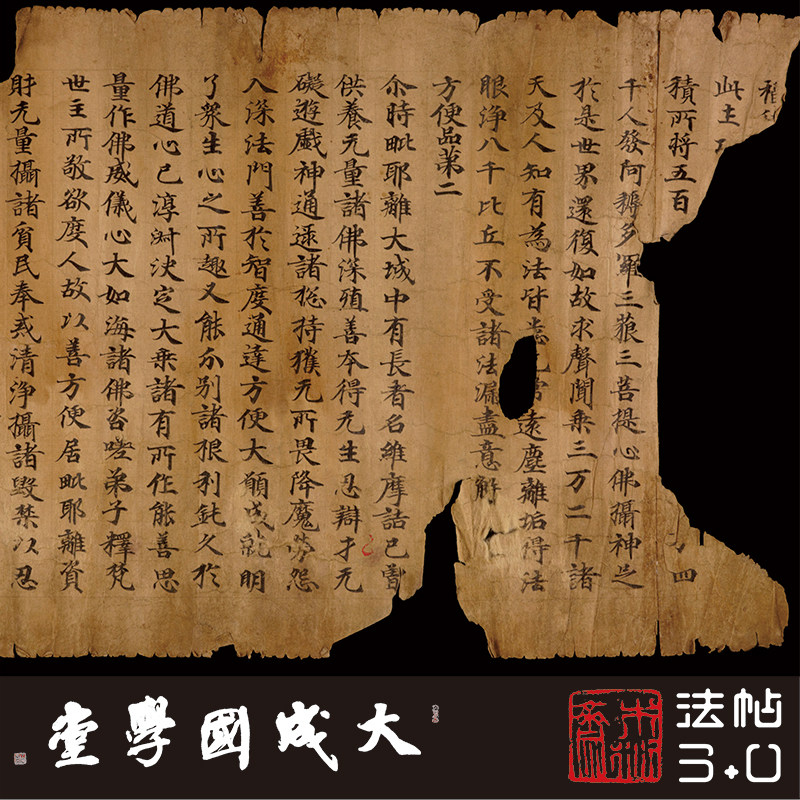 此土
積所將五百
四
千人發阿耨多羅三藐三菩提心佛攝神足
於是世界還復如故求聲聞乘三万二千諸
天及人知有為法皆悉无常遠塵離垢得法
眼淨八千比丘不受諸法漏盡意解
方便品第二
尒時毗耶離大城中有長者名維摩詰已曾
供養无量諸佛深殖善本得无生忍辯才无
礙遊戲神通逮諸捴持獲无所畏降魔勞怨
入深法門善於智度通達方便大願成就明
了衆生心之所趣又能分別諸根利鈍久於
佛道心已淳淑決定大乘諸有所作能善思
量作佛威儀心大如海諸佛咨嗟弟子釋梵
世主所敬欲度人故以善方便居毗耶離資
財无量攝諸貧民奉戒清淨攝諸毀禁以忍
大成國學堂
法帖
3.0